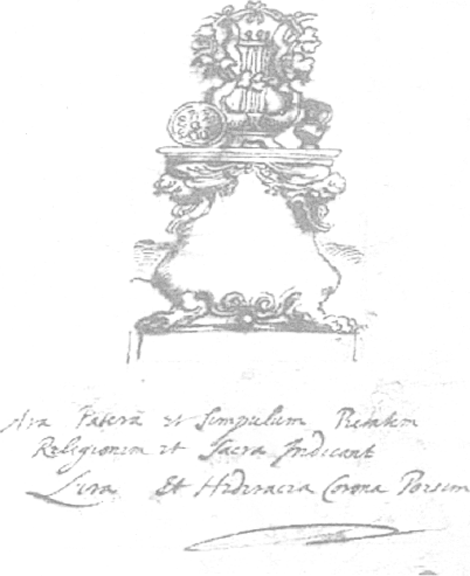 Ara Paterã et Simpulum Pietatem
Religionem et Sacra Indicant
Lira Et Hederacea Corona Poesim